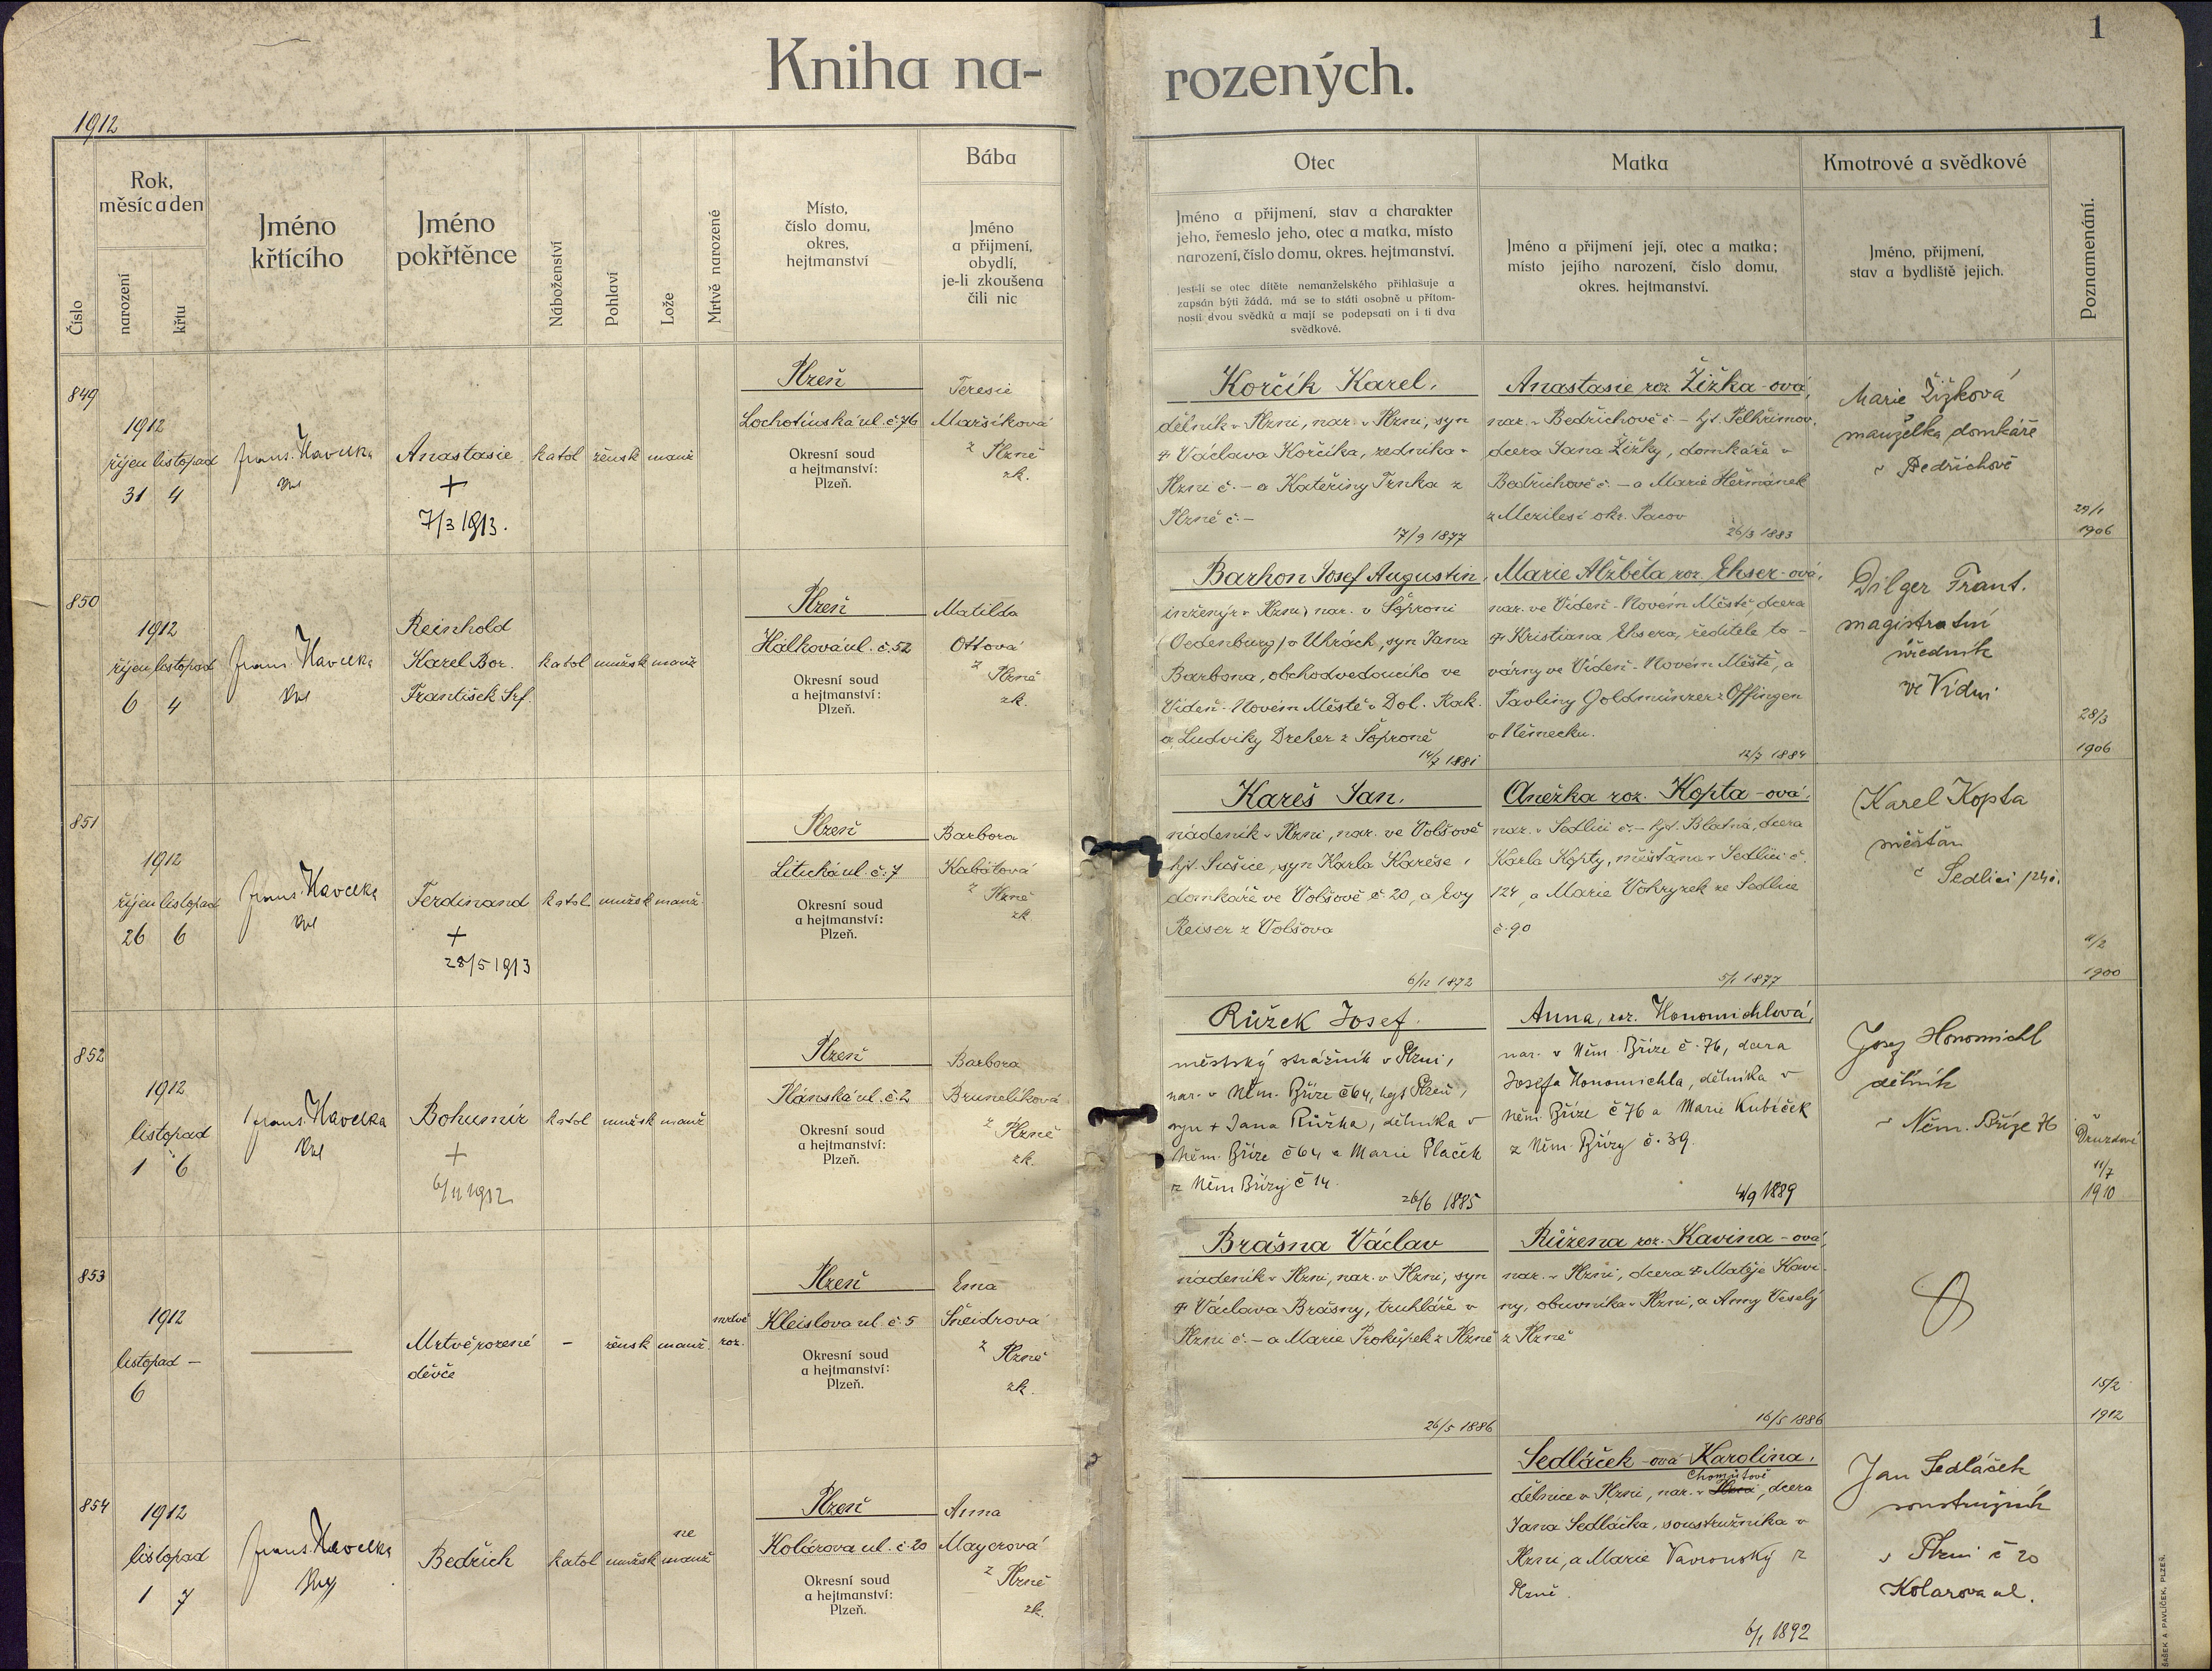 1
Kniha na-
rozených.
1912
Číslo
Rok,
měsíc a den
narození
křtu
Jméno
křtícího
Jméno
pokřtěnce
Náboženství
Pohlaví
Lože
Mrtvě narozené
Místo,
číslo domu,
okres,
hejtmanství
Bába
Jméno
a přijmení,
obydlí,
je-li zkoušena
čili nic
Otec
Jméno a přijmení, stav a charakter
jeho, řemeslo jeho, otec a matka, místo
narození, číslo domu, okres. hejtmanství.
Jest-li se otec dítěte nemanželského přihlašuje a
zapsán býti žádá, má se to státi osobně u přítom-
nosti dvou svědků a mají se podepsati on i ti dva
svědkové.
Matka
Jméno a přijmení její, otec a matka;
místo jejího narození, číslo domu,
okres. hejtmanství.
Kmotrové a svědkové
Jméno, přijmení,
stav a bydliště jejich.
Poznamenání.
849
1912
říjen listopad
31 4
Frant. Havelka
Anastasie
+
7/3 1913.
katol žensk manž
Plzeň
Lochotínská ul. č. 76
Okresní soud
a hejtmanství:
Plzeň.
Teresie
Maršíková
z Plzně
zk.
Korčík Karel,
dělník v Plzni, nar. v Plzni, syn
† Václava Korčíka, zedníka v
Plzni č. – a Kateřiny Trnka z
Plzně č. –
17/9 1877
Anastasie roz. Žižka-ová,
nar. v Bedřichově č – hjt. Pelhřimov,
dcera Jana Žižky, domkáře v
Bedřichově č. – a Marie Heřmánek
z Mezilesí okr. Pacov
26/3 1883
Marie Žižková
manželka domkáře
v Bedřichově
29/1
1906
850
1912
říjen listopad
6 4
Frant. Havelka
Reinhold
Karel Bor.
František Srf.
katol mužsk manž
Plzeň
Hálkova ul. č. 52
Okresní soud
a hejtmanství:
Plzeň.
Matilda
Ottová
z Plzně
zk.
Barhon Josef Augustin,
inženýr v Plzni, nar. v Šoproni
(Oedenburg) v Uhrách, syn Jana
Barbona, obchodvedoucího ve
Vídeň-Novém Městě v Dol. Rak.
a Ludviky Dreher z Šoproně
14/7 1881
Marie Alžběta roz. Ehser-ová,
nar. ve Vídeň-Novém Městě, dcera
† Kristiana Ehsera, ředitele to-
várny ve Vídeň-Novém Městě, a
Pavliny Goldmünzer z Offingen
v Německu.
12/7 1884
Dilger Frant.
magistratní
úředník
ve Vídni
28/3
1906
851
1912
říjen listopad
26 6
Frant. Havelka
Ferdinand
+
28/5 1913
katol mužsk manž.
Plzeň
Litická ul. č. 7
Okresní soud
a hejtmanství:
Plzeň.
Barbora
Kabátová
z Plzně
zk.
Kareš Jan,
nádeník v Plzni, nar. ve Volšově
hjt. Sušice, syn Karla Kareše,
domkáře ve Volšově č. 20, a Evy
Reiser z Volšova
6/12 1872
Anežka roz. Kopta-ová,
nar. v Sedlici č. – hjt. Blatná, dcera
Karla Kopty, měšťana v Sedlici č.
124, a Marie Vohryzek ze Sedlice
č. 90
5/1 1877
Karel Kopta
měšťan
v Sedlici 124.
11/2
1900
852
1912
listopad
1 6
Frant. Havelka
Bohumír
+
6/11 1912
katol mužsk manž
Plzeň
Plánská ul. č. 2
Okresní soud
a hejtmanství:
Plzeň.
Barbora
Brunclíková
z Plzně
zk.
Růžek Josef.
městský strážník v Plzni,
nar. v Něm. Bříze č 64, hejt Plzeň,
syn + Jana Růžka, dělníka v
Něm. Bříze č 64 a Marie Plaček
z Něm Břízy č 14.
26/6 1885
Anna, roz. Honomichlová,
nar. v Něm. Bříze č. 76, dcera
Josefa Honomichla, dělníka v
Něm. Bříze č 76 a Marie Kubíček
z Něm. Břízy č. 39.
4/9 1889
Josef Honomichl
dělník
v Něm. Bříze 76
11/7
1910
853
1912
listopad –
6
Mrtvě rozené
děvče
–
žensk manž.
mrtvě
roz.
Plzeň
Kleislova ul. č. 5
Okresní soud
a hejtmanství:
Plzeň.
Ema
Šneidrova
z Plzně
zk.
Brašna Václav
nádeník v Plzni, nar. v Plzni, syn
† Václava Brašny, truhláře v
Plzni č. – a Marie Prokůpek z Plzně
26/5 1886
Růžena roz. Kavina-ová,
nar. v Plzni, dcera † Matěje Kavi-
ny, obuvníka v Plzni, a Anny Veselý
z Plzně
16/5 1886
15/2
1912
854
1912
listopad
1 7
Frant. Havelka
Bedřich
katol mužsk
ne
manž
Plzeň
Kolárova ul. č. 20
Okresní soud
a hejtmanství:
Plzeň.
Anna
Mayerová
z Plzně
zk.
Sedláček-ová Karolina,
Chomutově
dělnice v Plzni, nar. v Plzni, dcera
Jana Sedláčka, soustružníka v
Plzni, a Marie Vavronský z
Plzně.
6/1 1892
Jan Sedláček
soustružník
v Plzni č 20
Kolarova ul.
ŠAŠEK A PAVLÍČEK, PLZEŇ.